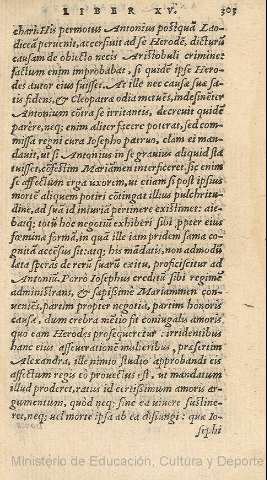 LIBER XV. 303
chari. His permotus Antonius postquā Lao-
diceā peruenit, accersiuit ad se Herodē, dicturū
causam de obiecto necis Aristobuli crimine:
factum enim improbabat, si quidē ipse Hero-
des autor eius fuisset. At ille nec causæ suæ sa-
tis fidens, & Cleopatræ odia metuēs, indesinēter
Antonium cōtra se irritantis, decreuit quidē
parere, neq; enim aliter facere poterat, sed com-
missa regni cura Iosepho patruo, clam ei man-
dauit, ut si Antonius in se grauius aliquid sta
tuisset, cōfestim Mariāmen interficeret, sic enim
se affectum erga uxorem, ut etiam si post ipsius
mortē aliquem potiri cōtingat illius pulchritu-
dine, ad suā id iniuriā pertinere existimet: aie-
batq; totū hoc negotiū exhiberi sibi ꝓpter eius
formunа formā, in quā ille iam pridem fama co-
gnitā accēsus sit: atq; his mādatis, non admodū
læta sperās de rerū suarū exitu, proficiscitur ad
Antoniū. Porrò Iosephus creditū sibi regimē
administrans, & sæpissimè Mariammen con-
ueniēs, partim propter negotia, partim honoris
causa, dum crebra mētio fit coniugalis amoris,
quo eam Herodes prosequeretur: irridentibus
hanc eius asseueratione mulieribus, præsertim
Alexandra, ille nimio studio approbandi eis
affectum regis eò prouectus est, ut mandatum
illud proderet, ratus id certissimum amoris ar-
gumentum, quòd neq; sine ea uiuere sustine-
ret, neq; uel morte ipsa ab ea disiungi: quæ Io-
sephi
Ministerio de Educación, Cultura y Deporte